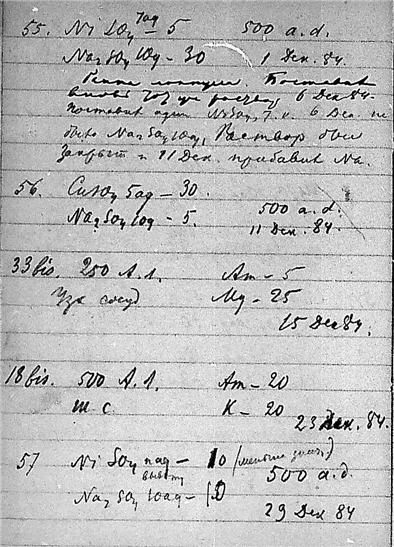 55. Ni SO4 7aq - 5 500 a.d.
Na2SO4 10aq - 30 1 Дек. 84.
Поставил
вновь 6 Дек 84.
Поставил один NiSO4, т. к. 6 Дек. не
было Na2SO4 10aq, Раствор был
Закрыт и 11 Дек. прибавил Na.
56. CuSO4 5aq - 30.
Na2SO4 10aq - 5. 500 a.d.
11 Дек. 84.
33 bis. 250 А.Л. Am - 5
Узк сосуд Mg - 25
15 Дек 84.
18 bis. 500 А.Л. Am - 20
Ш С. K - 20
23 Дек. 84.
57 Ni SO4 7aq - 10
500 a.d.
Na2 SO4 10aq - 10
29 Дек 84